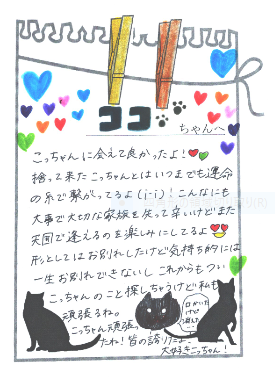 ココ
ちゃんへ
こっちゃんに会えて良かったよ!
捨って来たこっちゃんとはいつまでも運命
の糸で繋がってるよ(i-i)!こんなにも
大事で大切な家族を失って辛いけどまた
天国で逢えるのを楽しみにしてるよ
形としてはお別れしたけど気持ち的には
一生お別れできないし これからもつい
こっちゃんのこと探しちゃうけど私も
頑張るね。
こっちゃん頑張っ
たね!皆の誇りだよ
大好きこっちゃん!